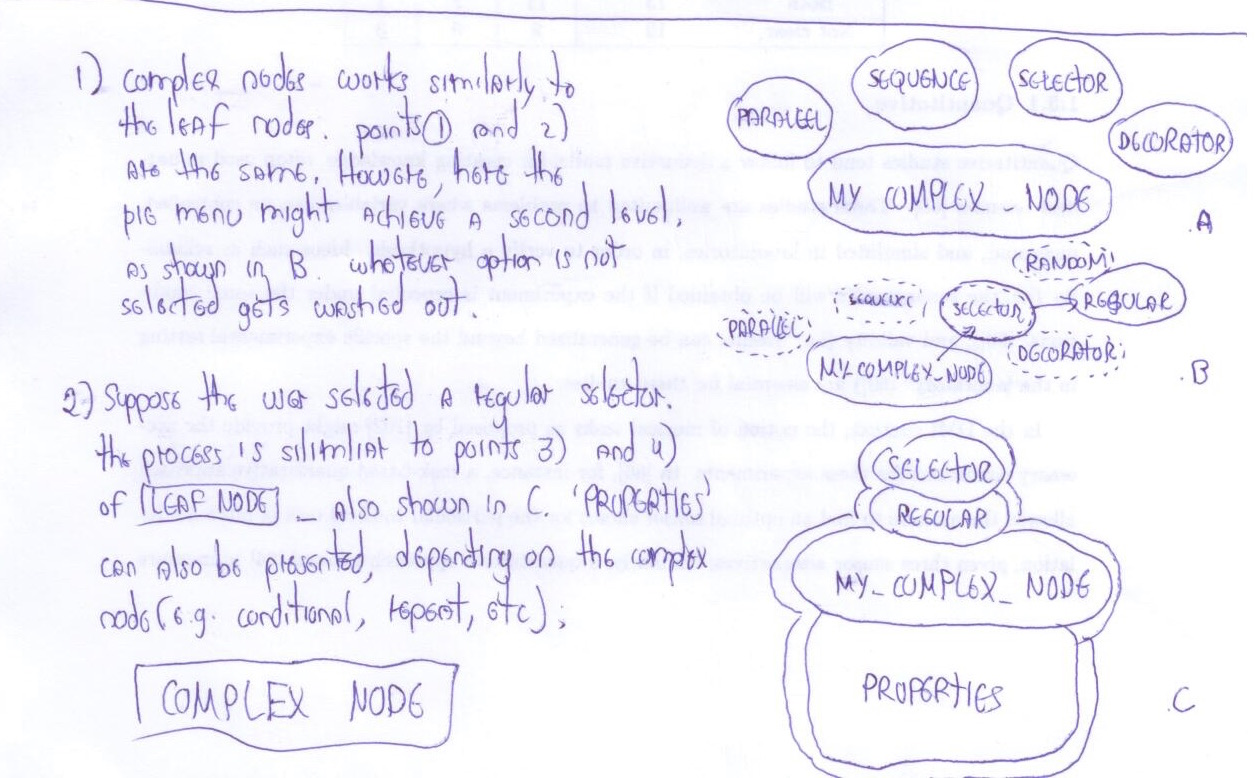 1) Complex nodes works similarly to
the leaf nodes. points 1) and 2)
are the same. Howere, here the
pie menu might achieve a second level.
as shown in B. whatever option is not
selected gets washed out.
2) Suppose the user selected a regular selector.
the process is sillimiar to points 3) and 4)
of LEAF NODE. Also shown in C. 'PROPERTIES'
can also be presented, depenting on the complex
node (e.g. conditional, repeat, etc);
COMPLEX NODE
PARALLEL
SEQUENCE
SELECTOR
DECORATOR
MY COMPLEX NODE
A
RANDOM
SEQUENCE
SELECTOR
REGULAR
PARALLEL
DECORATOR
MY-COMPLEX-NODE
B
SELECTOR
REGULAR
MY_COMPLEX_NODE
PROPERTIES
C